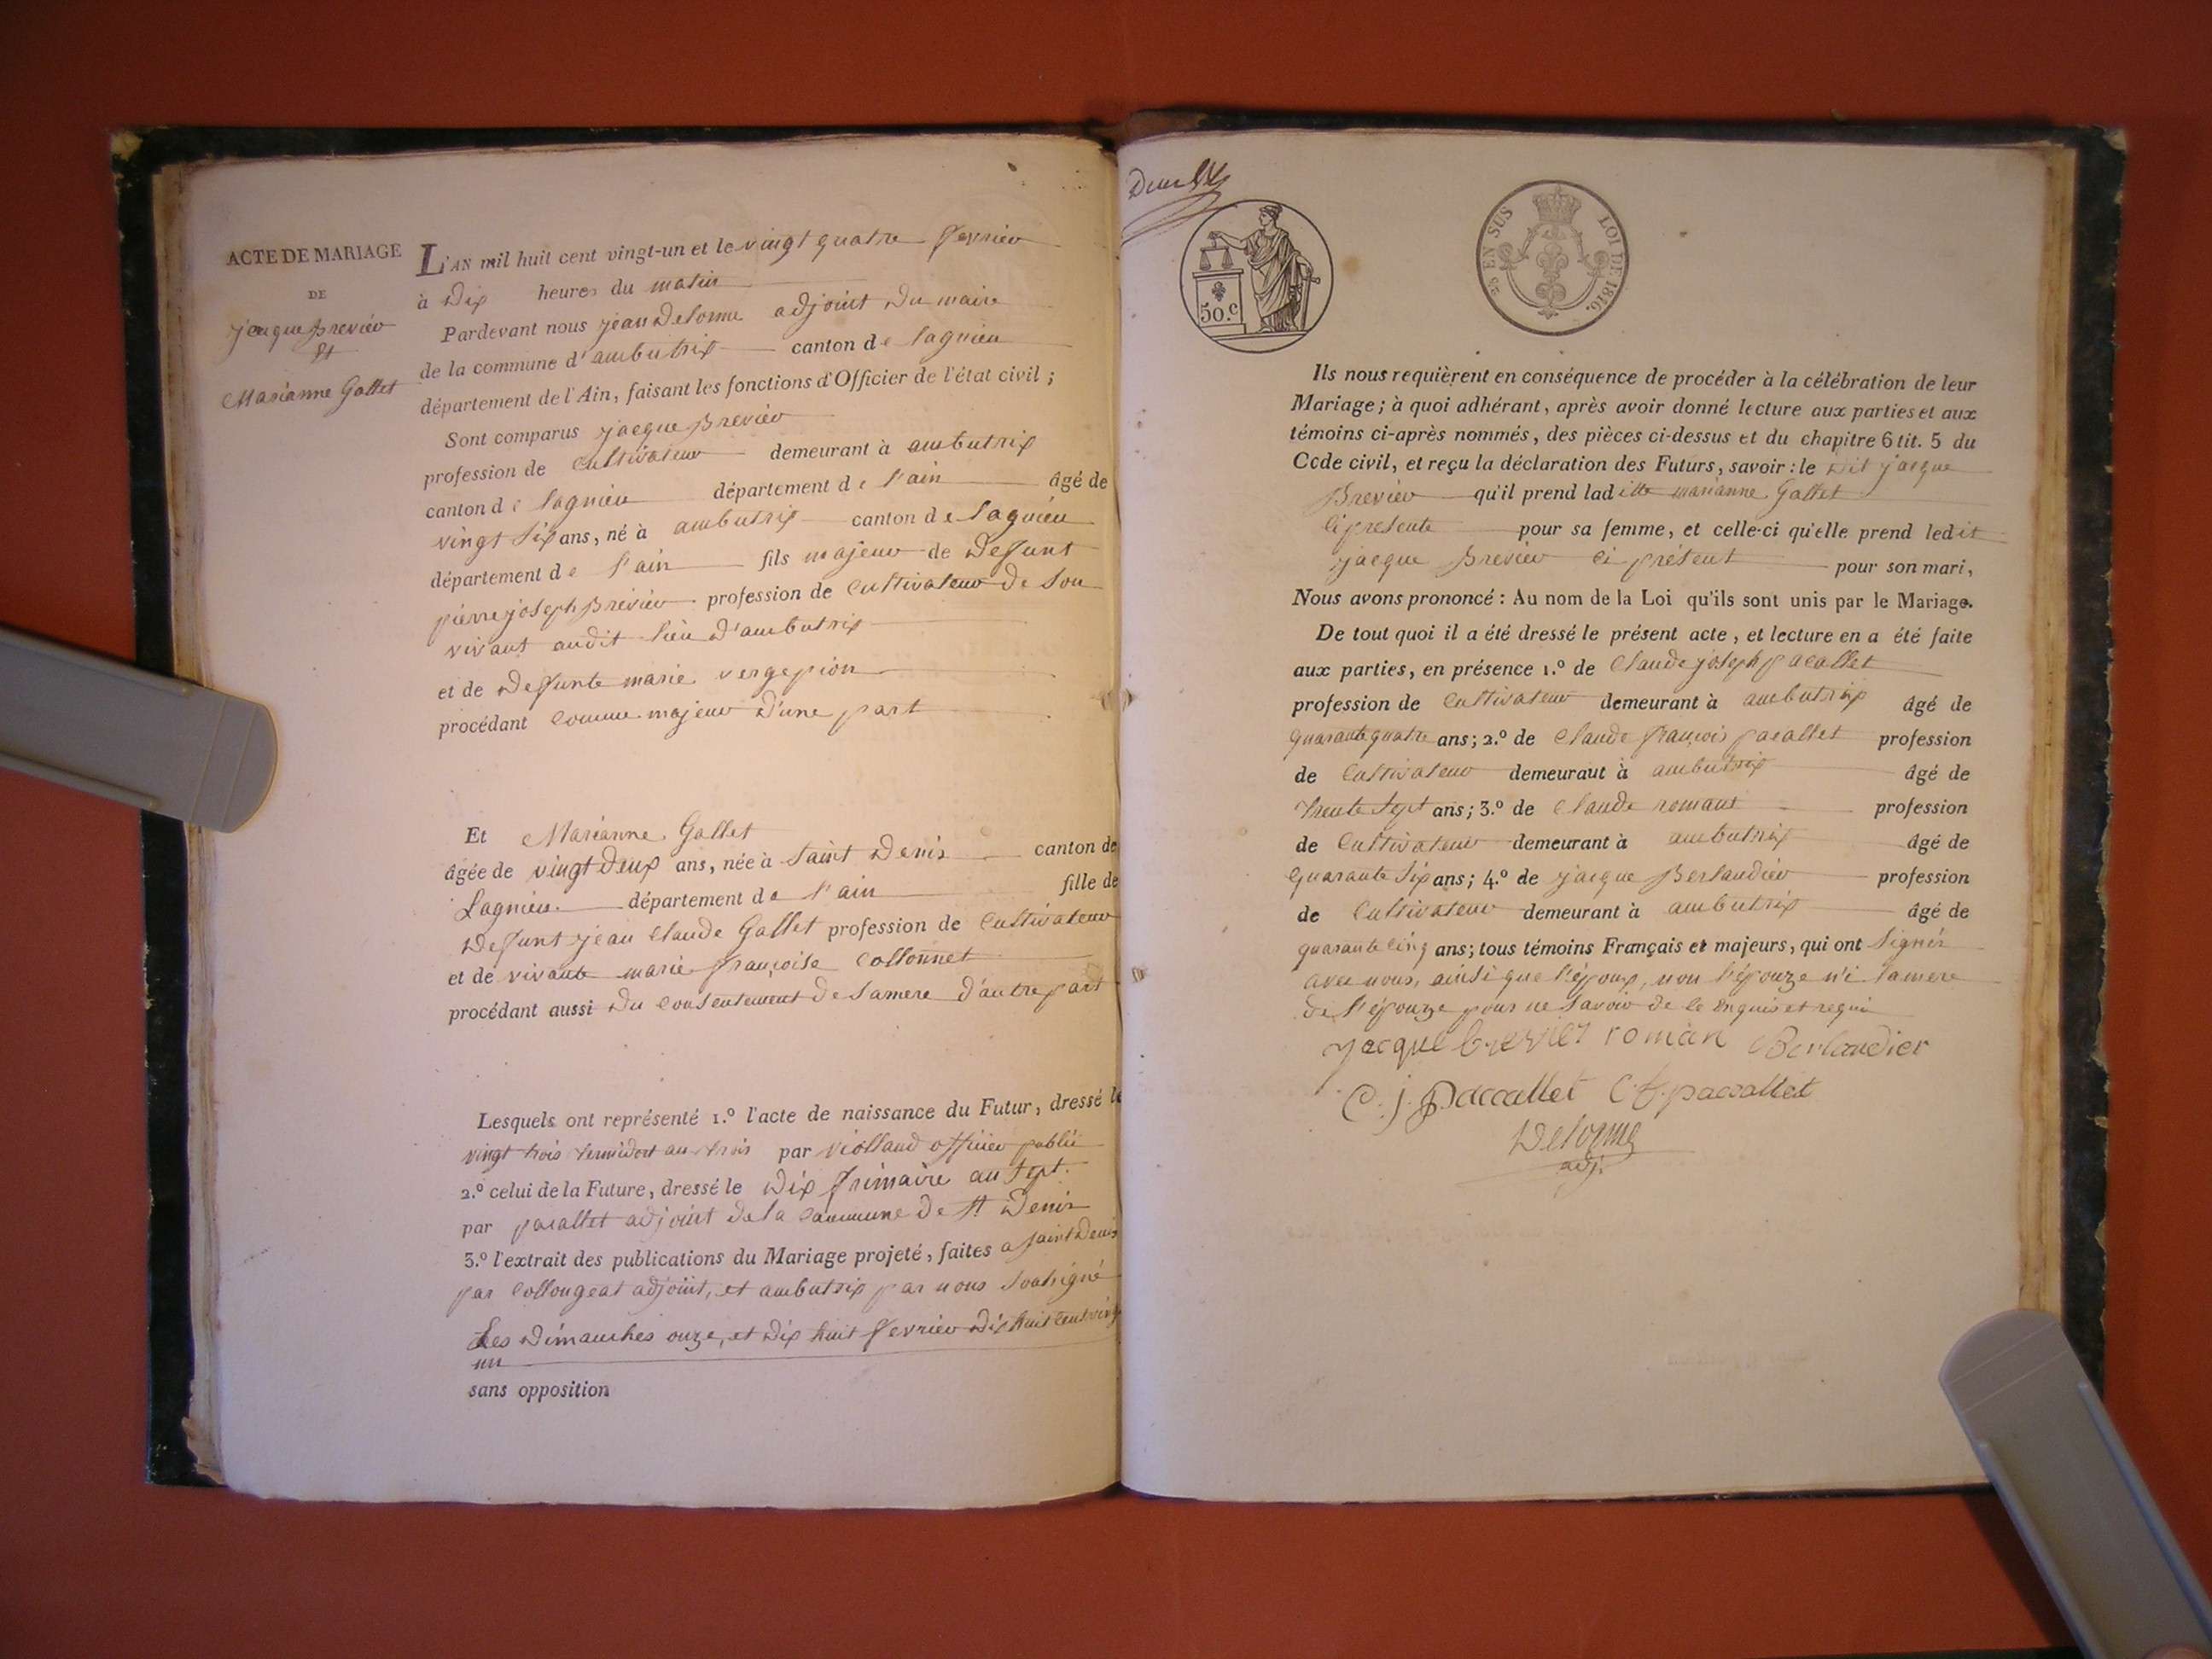 ACTE DE MARIAGE
DE
jacque Brevier
Et
Marianne Gallet
L'AN mil huit cent vingt-un et le vingt quatre fevrier
à Dix heures du matin
Pardevant nous jean Delorme adjoint du maire
de la commune d'ambutrix canton de lagnieu
département de l'Ain, faisant les fonctions d'Officier de l'état civil ;
Sont comparus jacque Brevier
profession de cultivateur demeurant à ambutrix
canton de lagnieu département de l'ain âgé de
vingt six ans, né à ambutrix canton de lagnieu
département de l'ain fils majeur de Defunt
pierre joseph Brevier profession de cultivateur de son
vivant audit lieu d'ambutrix
et de Defunte marie vergepion
procédant comme majeur d'une part
Et Marianne Gallet
âgée de vingt deux ans, née à saint Denis canton de
Lagnieu département de l'ain fille de
Defunt jean claude Gallet profession de cultivateur
et de vivante marie françoise collonnet
procédant aussi du consentement de sa mere d'autre part
Lesquels ont représenté 1.º l'acte de naissance du Futur, dressé le
vingt trois termidort an trois par violland officier public
2.º celui de la Future, dressé le Dix frimaire an sept.
par pacallet adjoint de la commune de St Denis
3.º l'extrait des publications du Mariage projeté, faites a saint Denis
par collongeat adjoint, et ambutrix par nous soutsigné
Les Dimanches onze, et dix huit fevrier dix huit cent vingt
un
sans opposition
50.c
EN SUS LOI DE 1816.
Ils nous requièrent en conséquence de procéder à la célébration de leur
Mariage ; à quoi adhérant, après avoir donné lecture aux parties et aux
témoins ci-après nommés, des pièces ci-dessus et du chapitre 6 tit. 5 du
Code civil, et reçu la déclaration des Futurs, savoir : le dit jacque
Brevier qu'il prend laditte marianne Gallet
ci presente pour sa femme, et celle-ci qu'elle prend ledit
jacque Brevier ci présent pour son mari,
Nous avons prononcé : Au nom de la Loi qu'ils sont unis par le Mariage.
De tout quoi il a été dressé le présent acte, et lecture en a été faite
aux parties, en présence 1.º de claude joseph pacallet
profession de cultivateur demeurant à ambutrix âgé de
quarante quatre ans ; 2.º de claude françois pacallet profession
de cultivateur demeurant à ambutrix âgé de
trente sept ans ; 3.º de claude romant profession
de cultivateur demeurant à ambutrix âgé de
quarante six ans ; 4.º de jacque Berlandier profession
de cultivateur demeurant à ambutrix âgé de
quarante cinq ans ; tous témoins Français et majeurs, qui ont signés
avec nous, ainsi que l'époux, non l'épouze n'i la mere
de l'épouze pour ne savoir de ce enquis et requi
jacque brevier roman Berlandier
C. j. paccallet C f. paccallet
Delorme
adj.